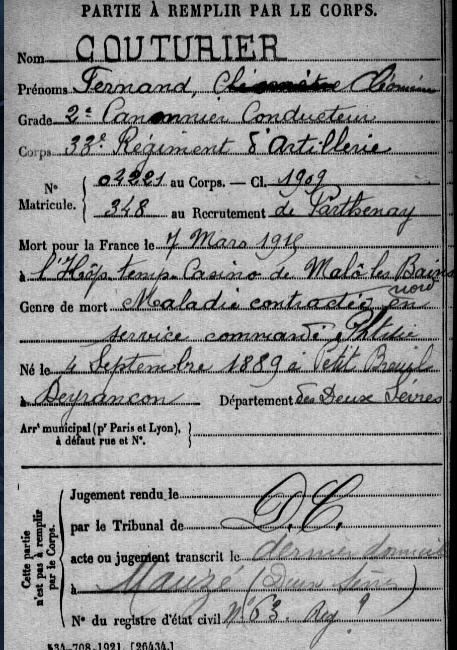 PARTIE À REMPLIR PAR LE CORPS.
Nom COUTURIER
Prénoms Fernand,
Grade 2e Canonnier Conducteur
Corps 33e Régiment d'Artillerie
N° Matricule. { 02221 au Corps. — Cl. 1909
348 au Recrutement de Parthenay
Mort pour la France le 7 Mars 1915
à l'Hôp temp. Casino de Malo les Bains
nord
Genre de mort Maladie contractée en
service commandé,
Né le 4 Septembre 1889 à Petit Breuil
à Deyrançon Département des Deux Sèvres
Arrt municipal (pr Paris et Lyon), à défaut rue et N°.
Cette partie n'est pas à remplir par le Corps.
Jugement rendu le
par le Tribunal de D.C.
acte ou jugement transcrit le dernier domicile
à Mauzé (Deux Sèvres)
N° du registre d'état civil N° 53.
534-708-1921. [26434.]